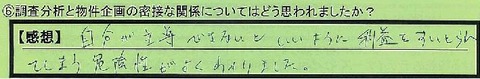 ⑥調査分析と物件企画の密接な関係についてはどう思われましたか？
【感想】自分が主導でないといいように利益をすいとられ
てしまう危険性がよくわかりました。